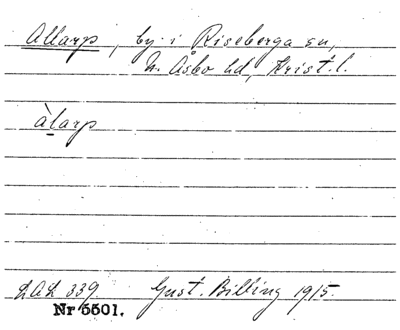 Allarp, by i Riseberga sn,
N. Åsbo hd, Krist. l.
àlarp
LAL 339 Gust. Billing 1915.
Nr 5501.